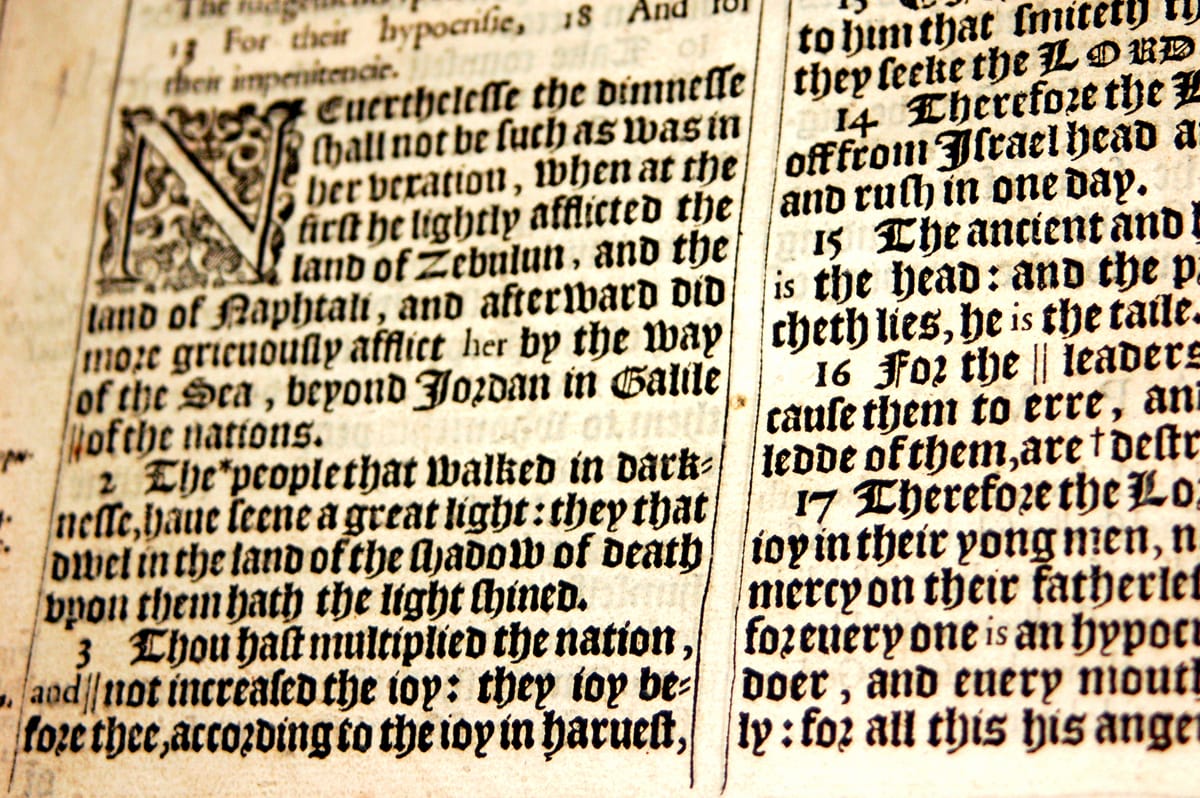 13 For their hypocrisie, 18 And for
their impenitencie.
NEuerthelesse the dimnesse
shall not be such as was in
her vexation, when at the
first he lightly afflicted the
land of Zebulun, and the
land of Naphtali, and afterward did
more grieuously afflict her by the way
of the Sea, beyond Jordan in Galile
||of the nations.
2 The*people that walked in dark=
nesse,haue seene a great light: they that
dwel in the land of the shadow of death
vpon them hath the light shined.
3 Thou hast multiplied the nation,
and||not increased the ioy: they ioy be=
fore thee,according to the ioy in haruest,
to him that smiteth
they seeke the LORD
14 Therefore the
off from Israel head
and rush in one day.
15 The ancient and
is the head: and the
cheth lies, he is the taile.
16 For the || leaders
cause them to erre,
ledge of them,are†
17 Therefore the
ioy in their yong men,
mercy on their
for euery one is an
doer, and euery
ly: for all this his